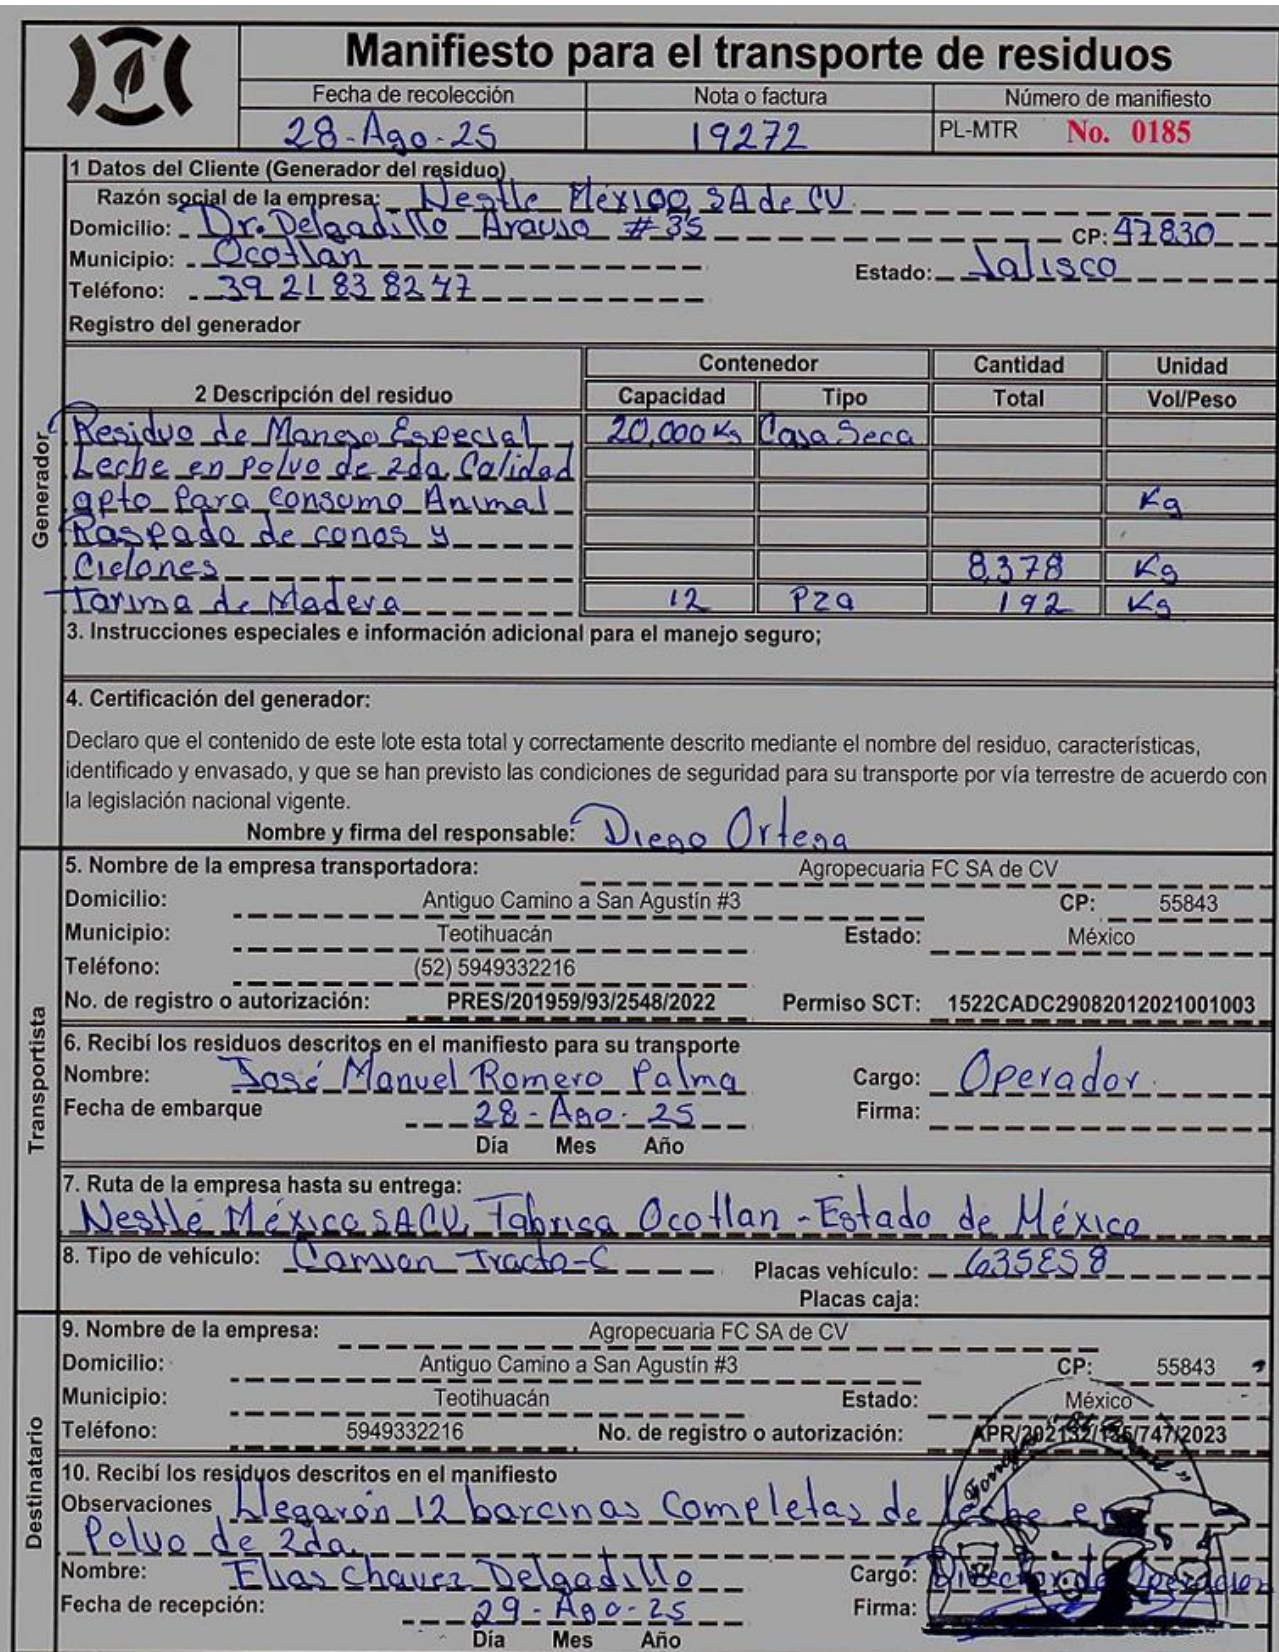 Manifiesto para el transporte de residuos
Fecha de recolección Nota o factura Número de manifiesto
28-Ago-25 19272 PL-MTR No. 0185
Generador
1 Datos del Cliente (Generador del residuo)
Razón social de la empresa: Nestle México, SA de CV
Domicilio: Dr. Delgadillo Arauso #35 CP: 47830
Municipio: Ocotlan Estado: Jalisco
Teléfono: 39 21 83 82 47
Registro del generador
2 Descripción del residuo Contenedor Cantidad Unidad
Capacidad Tipo Total Vol/Peso
Residuo de Manejo Especial 20,000 Kg Caja Seca
Leche en polvo de 2da. Calidad
apto Para consumo Animal Kg
Raspado de conos y
Ciclones 8,378 Kg
Tarima de Madera 12 Pza 192 Kg
3. Instrucciones especiales e información adicional para el manejo seguro;
4. Certificación del generador:
Declaro que el contenido de este lote esta total y correctamente descrito mediante el nombre del residuo, características,
identificado y envasado, y que se han previsto las condiciones de seguridad para su transporte por vía terrestre de acuerdo con
la legislación nacional vigente.
Nombre y firma del responsable: Diego Ortega
Transportista
5. Nombre de la empresa transportadora: Agropecuaria FC SA de CV
Domicilio: Antiguo Camino a San Agustín #3 CP: 55843
Municipio: Teotihuacán Estado: México
Teléfono: (52) 5949332216
No. de registro o autorización: PRES/201959/93/2548/2022 Permiso SCT: 1522CADC29082012021001003
6. Recibí los residuos descritos en el manifiesto para su transporte
Nombre: José Manuel Romero Palma Cargo: Operador.
Fecha de embarque 28-Ago-25 Firma:
Día Mes Año
7. Ruta de la empresa hasta su entrega:
Nestlé México SACV, Fabrica Ocotlan - Estado de México
8. Tipo de vehículo: Camion Tracto-C Placas vehículo: 635ES8
Placas caja:
Destinatario
9. Nombre de la empresa: Agropecuaria FC SA de CV
Domicilio: Antiguo Camino a San Agustín #3 CP: 55843
Municipio: Teotihuacán Estado: México
Teléfono: 5949332216 No. de registro o autorización: APR/202132/136/747/2023
10. Recibí los residuos descritos en el manifiesto
Observaciones Llegarón 12 barcinas Completas de leche en
Polvo de 2da.
Nombre: Elias Chavez Delgadillo Cargo: Director de Operacion
Fecha de recepción: 29-Ago-25 Firma:
Día Mes Año